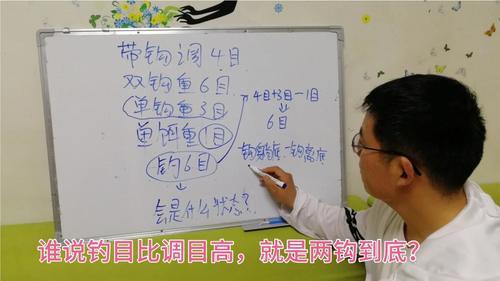 带钩调4目
双钩重6目
单钩重3目
鱼饵重1目
钓6目
↓
会是什么状态?
4目+3目-1目
↓
6目
一钩离底
谁说钓目比调目高，就是两钩到底？